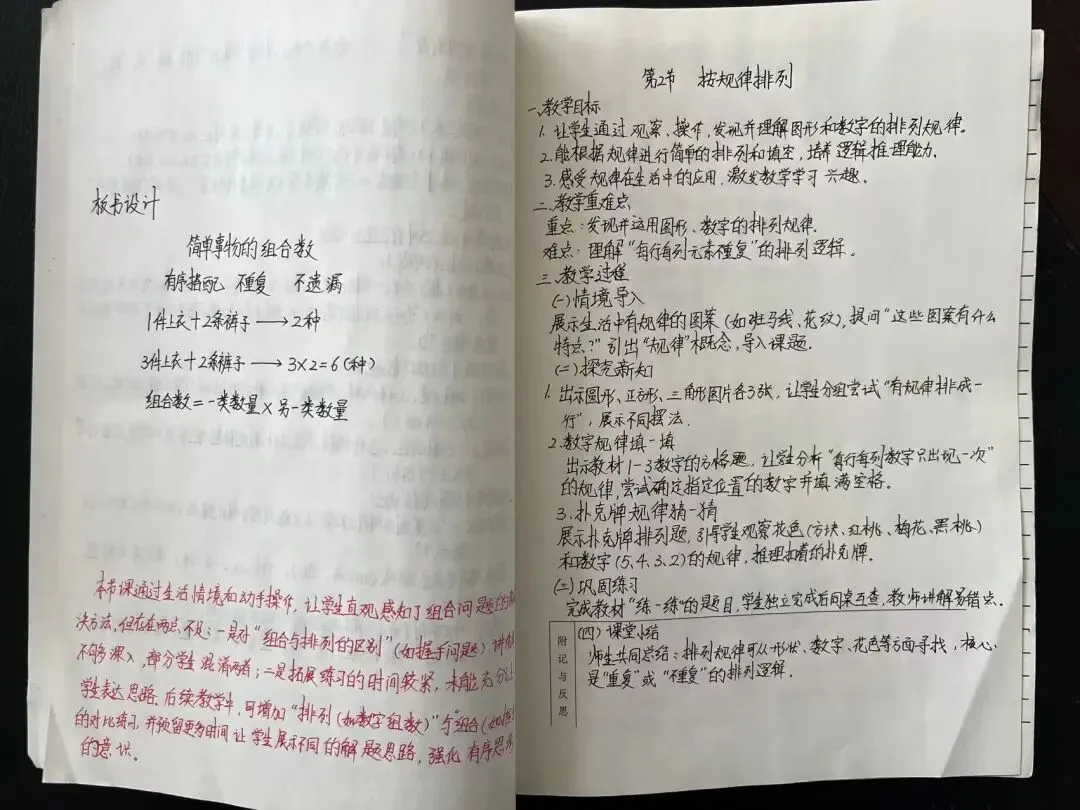 板书设计
简单事物的组合数
有序搭配 不重复 不遗漏
1件上衣+2条裤子→2种
3件上衣+2条裤子→3×2=6(种)
组合数=一类数量×另一类数量
本节课通过生活情境和动手操作，让学生直观感知了组合问题的
决方法，但存在两点不足：一是对“组合与排列的区别”（如握手问题）讲
不够深入，部分学生混淆两者；二是拓展练习的时间较紧，未能充分
学生表达思路。后续教学中，可增加“排列（如数字组数）”与“组合（如
的对比练习，并预留更多时间让学生展示不同的解题思路，强化有序思
的意识。
第2节 按规律排列
一、教学目标
1. 让学生通过观察、操作，发现并理解图形和数字的排列规律。
2. 能根据规律进行简单的排列和填空，培养逻辑推理能力。
3. 感受规律在生活中的应用，激发数学学习兴趣。
二、教学重难点
重点：发现并运用图形、数字的排列规律.
难点：理解“每行每列元素不重复”的排列逻辑。
三、教学过程
(一)情境导入
展示生活中有规律的图案（如斑马线、花纹），提问“这些图案有什么
特点？”引出“规律”概念，导入课题.
(二)探究新知
1. 出示圆形、正方形、三角形图片各3张，让学生分组尝试“有规律排成一
行”，展示不同摆法.
2. 数字规律填一填
出示教材1-3数字的方格题，让学生分析“每行每列数字只出现一次”
的规律，尝试确定指定位置的数字并填满空格。
3. 扑克牌规律猜一猜
展示扑克牌排列题，引导学生观察花色（方块、红桃、梅花、黑桃）
和数字（5、4、3、2）的规律，推理扣着的扑克牌。
(三)巩固练习
完成教材“练一练”的题目，学生独立完成后同桌互查，教师讲解易错点。
(四)课堂小结
师生共同总结：排列规律可从形状、数字、花色等方面寻找，核心
是“重复”或“不重复”的排列逻辑.
附记与反思